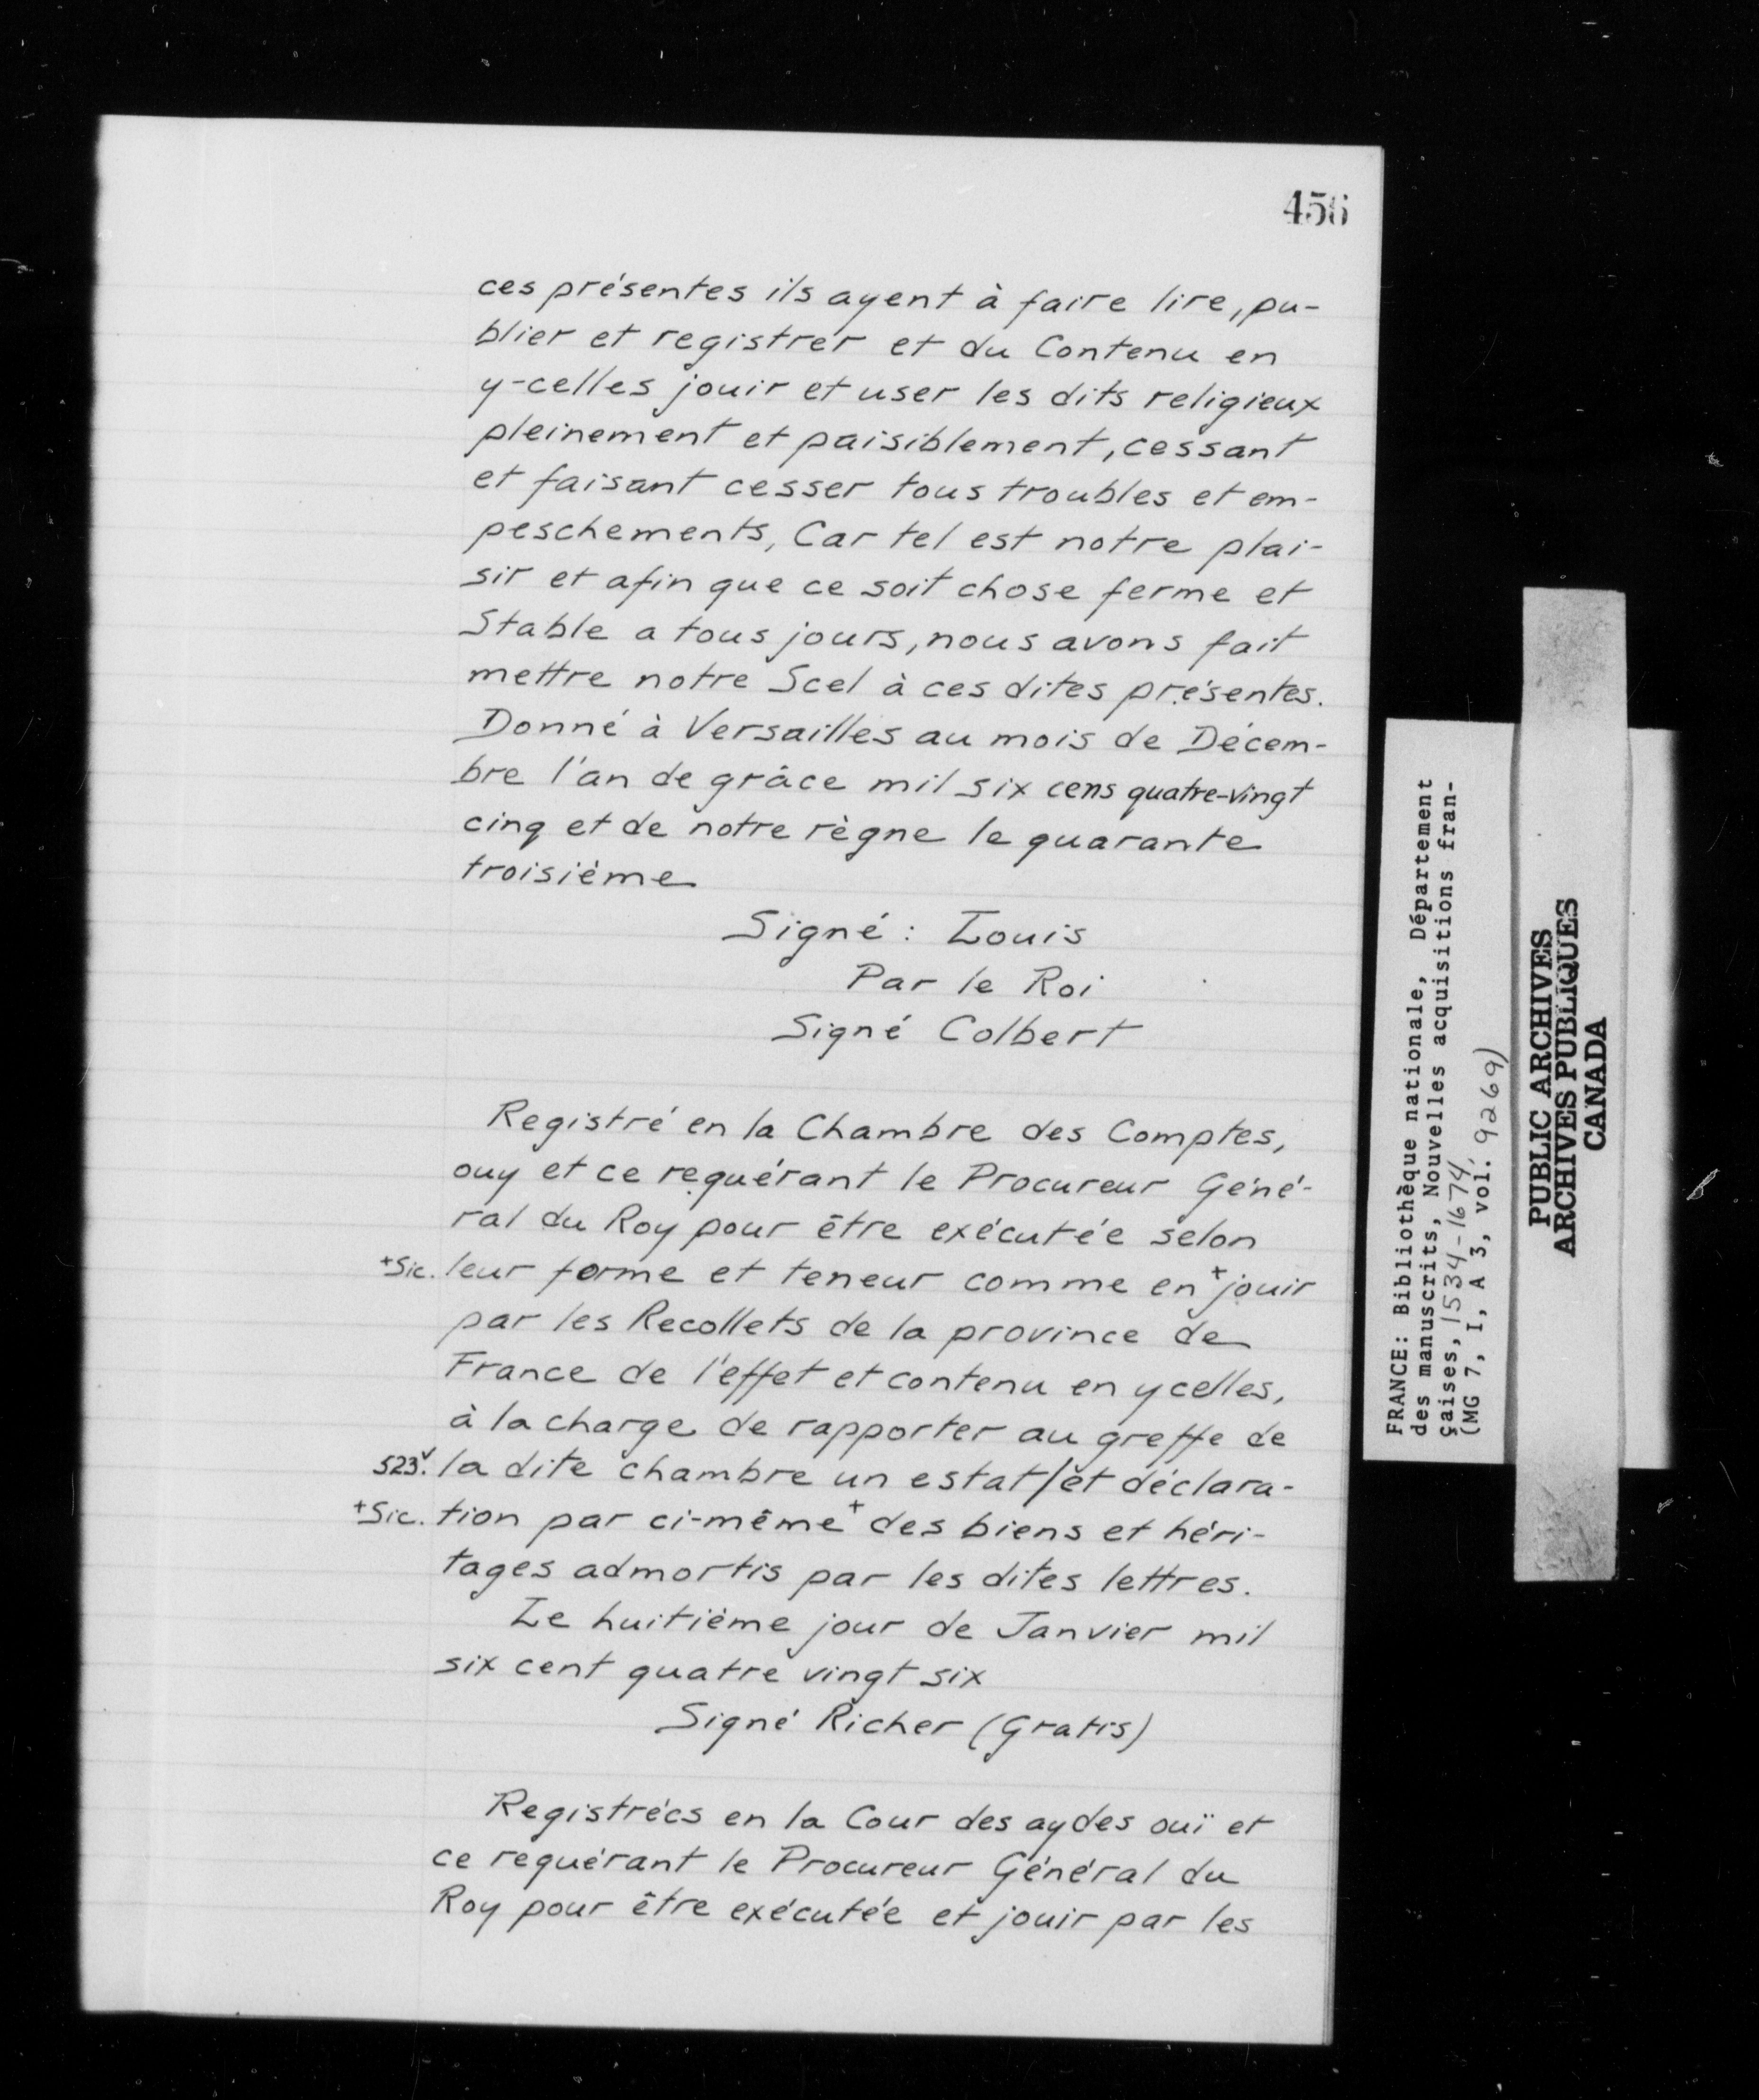 456
ces présentes ils ayent à faire lire, pu-
blier et registrer et du Contenu en
y-celles jouir et user les dits religieux
pleinement et paisiblement, cessant
et faisant cesser tous troubles et em-
peschements, Car tel est notre plai-
sir et afin que ce soit chose ferme et
Stable a tous jours, nous avons fait
mettre notre Scel à ces dites présentes.
Donné à Versailles au mois de Décem-
bre l'an de grâce mil six cens quatre-vingt
cinq et de notre règne le quarante
troisième
Signé : Louis
Par le Roi
Signé Colbert
Registré en la Chambre des Comptes,
ouy et ce requérant le Procureur Géné-
ral du Roy pour être exécutée selon
+Sic. leur forme et teneur comme en + jouir
par les Recollets de la province de
France de l'effet et contenu en ycelles,
à la charge de rapporter au greffe de
523v. la dite chambre un estat/et déclara-
+Sic. tion par ci-même + des biens et héri-
tages admortis par les dites lettres.
Le huitième jour de Janvier mil
six cent quatre vingt six
Signé Richer (Gratis)
Registrées en la Cour des aydes ouï et
ce requérant le Procureur Général du
Roy pour être exécutée et jouir par les
FRANCE: Bibliothèque nationale, Département
des manuscrits, Nouvelles acquisitions fran-
çaises, 1534-1674
(MG 7, I, A 3, vol. 9269)
PUBLIC ARCHIVES
ARCHIVES PUBLIQUES
CANADA